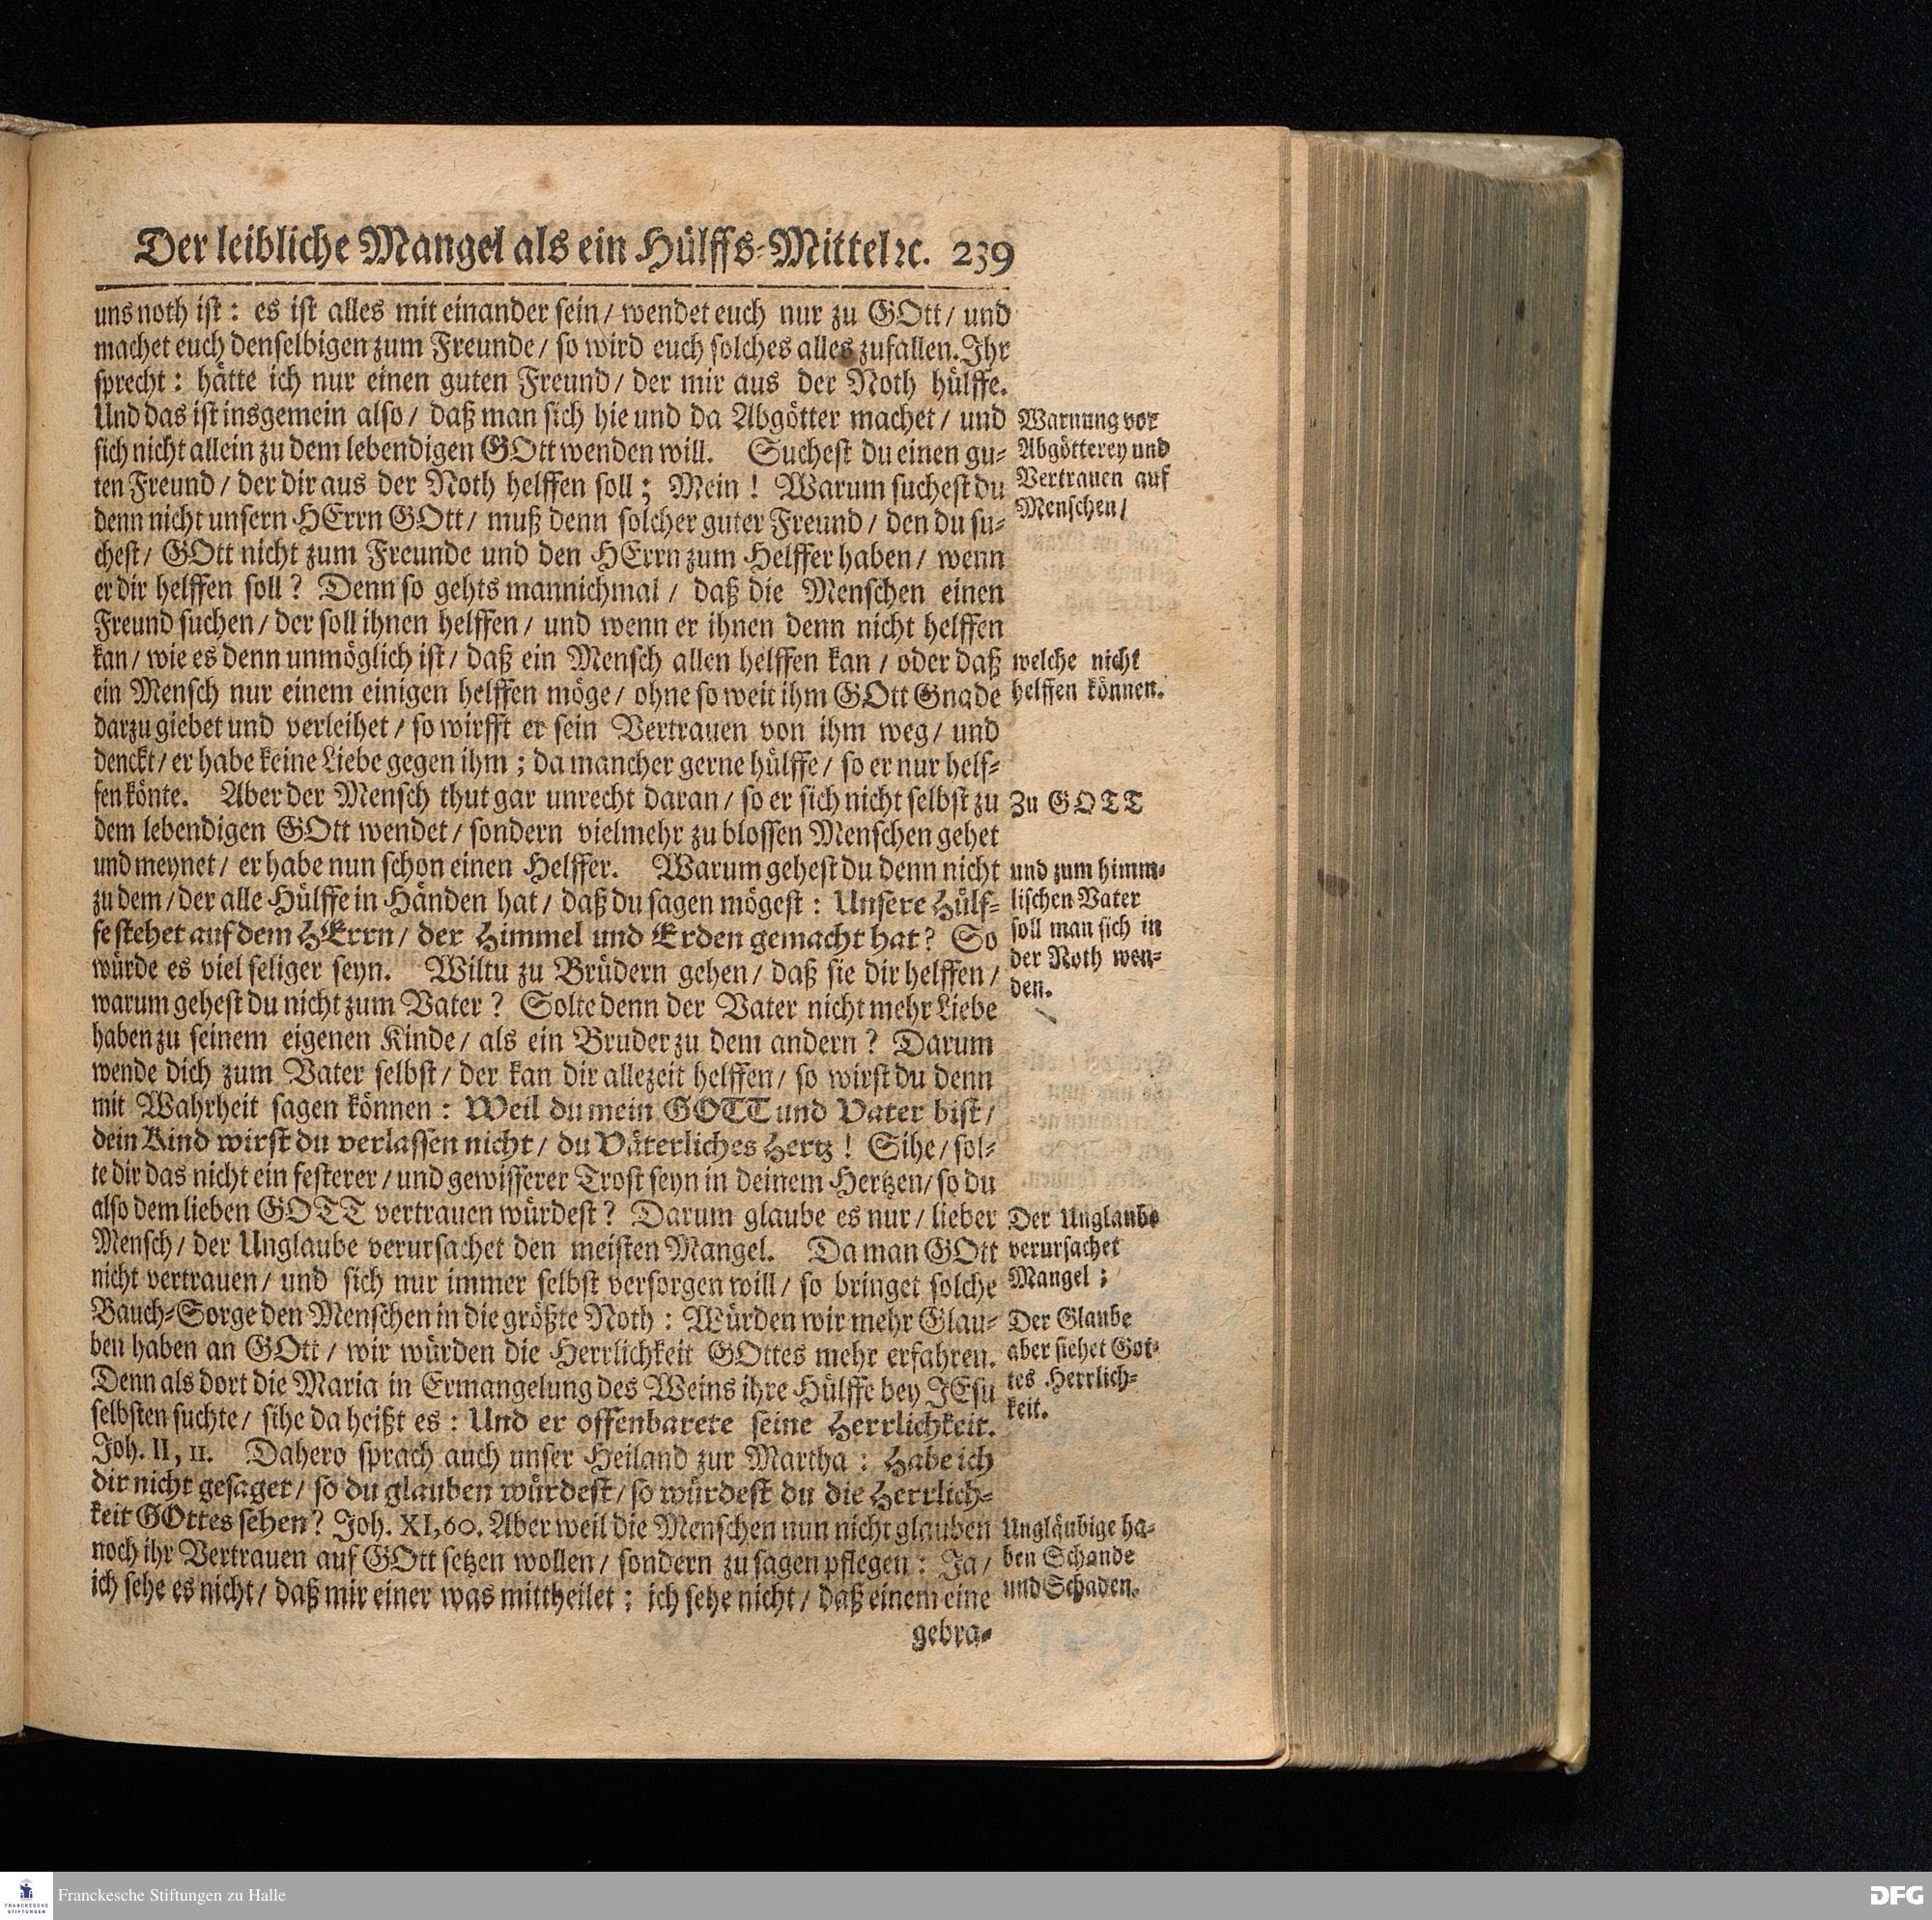 Der leibliche Mangel als ein Hülffs-Mittel ꝛc. 239
uns noth ist: es ist alles mit einander sein / wendet euch nur zu GOtt / und
machet euch denselbigen zum Freunde / so wird euch solches alles zufallen. Ihr
sprecht: hätte ich nur einen guten Freund / der mir aus der Noth hülffe.
Und das ist insgemein also / daß man sich hie und da Abgötter machet / und
sich nicht allein zu dem lebendigen GOtt wenden will. Suchest du einen gu-
ten Freund / der dir aus der Noth helffen soll; Mein! Warum suchest du
denn nicht unsern HErrn GOtt / muß denn solcher guter Freund / den du su-
chest / GOtt nicht zum Freunde und den HErrn zum Helffer haben / wenn
er dir helffen soll? Denn so gehts mannichmal / daß die Menschen einen
Freund suchen / der soll ihnen helffen / und wenn er ihnen denn nicht helffen
kan / wie es denn unmöglich ist / daß ein Mensch allen helffen kan / oder daß
ein Mensch nur einem einigen helffen möge / ohne so weit ihm GOtt Gnade
darzu giebet und verleihet / so wirfft er sein Vertrauen von ihm weg / und
denckt / er habe keine Liebe gegen ihm; da mancher gerne hülffe / so er nur helf-
fen könte. Aber der Mensch thut gar unrecht daran / so er sich nicht selbst zu
dem lebendigen GOtt wendet / sondern vielmehr zu blossen Menschen gehet
und meynet / er habe nun schon einen Helffer. Warum gehest du denn nicht
zu dem / der alle Hülffe in Händen hat / daß du sagen mögest: Unsere Hülf-
fe stehet auf dem HErrn / der Himmel und Erden gemacht hat? So
würde es viel seliger seyn. Wiltu zu Brüdern gehen / daß sie dir helffen /
warum gehest du nicht zum Vater? Solte denn der Vater nicht mehr Liebe
haben zu seinem eigenen Kinde / als ein Bruder zu dem andern? Darum
wende dich zum Vater selbst / der kan dir allezeit helffen / so wirst du denn
mit Wahrheit sagen können: Weil du mein GOTT und Vater bist /
dein Kind wirst du verlassen nicht / du Väterliches Hertz! Sihe / sol-
te dir das nicht ein festerer / und gewisserer Trost seyn in deinem Hertzen / so du
also dem lieben GOTT vertrauen würdest? Darum glaube es nur / lieber
Mensch / der Unglaube verursachet den meisten Mangel. Da man GOtt
nicht vertrauen / und sich nur immer selbst versorgen will / so bringet solche
Bauch-Sorge den Menschen in die größte Noth: Würden wir mehr Glau-
ben haben an GOtt / wir würden die Herrlichkeit GOttes mehr erfahren.
Denn als dort die Maria in Ermangelung des Weins ihre Hülffe bey JEsu
selbsten suchte / sihe da heißt es: Und er offenbarete seine Herrlichkeit.
Joh. II, 11. Dahero sprach auch unser Heiland zur Martha: Habe ich
dir nicht gesaget / so du glauben würdest / so würdest du die Herrlich-
keit GOttes sehen? Joh. XI, 60. Aber weil die Menschen nun nicht glauben
noch ihr Vertrauen auf GOtt setzen wollen / sondern zu sagen pflegen: Ja /
ich sehe es nicht / daß mir einer was mittheilet; ich sehe nicht / daß einem eine
gebra-
Warnung vor
Abgötterey und
Vertrauen auf
Menschen /
welche nicht
helffen können.
Zu GOTT
und zum himm-
lischen Vater
soll man sich in
der Noth wen-
den.
Der Unglaube
verursachet
Mangel;
Der Glaube
aber siehet Got-
tes Herrlich-
keit.
Ungläubige ha-
ben Schande
und Schaden.
FRANCKESCHE
STIFTUNGEN
Franckesche Stiftungen zu Halle
DFG